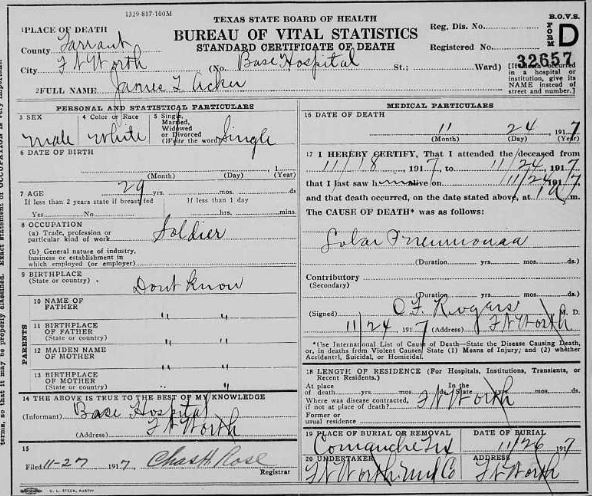 1129-817-100M
TEXAS STATE BOARD OF HEALTH
BUREAU OF VITAL STATISTICS
STANDARD CERTIFICATE OF DEATH
B.O.V.S.
FORM D
Reg. Dis. No.
Registered No. 32657
1PLACE OF DEATH
County Tarrant
City Ft Worth (No. Base Hospital St.; Ward)
[If death occurred in a hospital or institution, give its NAME instead of street and number.]
2FULL NAME James T. Acker
PERSONAL AND STATISTICAL PARTICULARS
3 SEX male
4 Color or Race White
5 Single, Married, Widowed or Divorced (Write the word) Single
6 DATE OF BIRTH
(Month) (Day) (Year)
7 AGE 29 yrs. mos. ds.
If less than 2 years state if breastfed
If less than 1 day
Yes No hrs. mins.
8 OCCUPATION
(a) Trade, profession or particular kind of work Soldier
(b) General nature of industry, business or establishment in which employed (or employer)
9 BIRTHPLACE
(State or country) Dont Know
PARENTS
10 NAME OF FATHER " "
11 BIRTHPLACE OF FATHER (State or country) " "
12 MAIDEN NAME OF MOTHER " "
13 BIRTHPLACE OF MOTHER (State or country) " "
14 THE ABOVE IS TRUE TO THE BEST OF MY KNOWLEDGE
(Informant) Base Hospital
(Address) Ft Worth
15
Filed 11-27 1917 Chas H. Rose
Registrar
MEDICAL PARTICULARS
16 DATE OF DEATH
11 24, 1917
(Month) (Day) (Year)
17 I HEREBY CERTIFY, That I attended the deceased from
11/18, 1917, to 11/24, 1917,
that I last saw him alive on 11/24, 1917,
and that death occurred, on the date stated above, at 1 a m.
The CAUSE OF DEATH* was as follows:
Lobar Pneumonia
(Duration) yrs. mos. ds.
Contributory
(Secondary)
(Duration) yrs. mos. ds.
(Signed) O.F. Rogers M. D.
11/24 1917 (Address) Ft Worth
*Use International List of Cause of Death—State the Disease Causing Death, or, in deaths from Violent Causes, State (1) Means of Injury; and (2) whether Accidental, Suicidal, or Homicidal.
18 LENGTH OF RESIDENCE (For Hospitals, Institutions, Transients, or Recent Residents.)
At place of death yrs. mos. ds. In the State yrs. mos. ds.
Where was disease contracted, if not at place of death? Ft Worth
Former or usual residence
19 PLACE OF BURIAL OR REMOVAL Comanche Tex
DATE OF BURIAL 11/26 1917
20 UNDERTAKER Ft Worth Und Co
ADDRESS Ft Worth